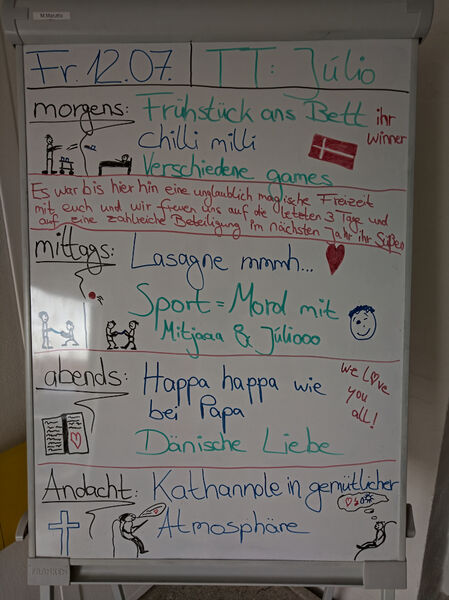 M.Marotta
Fr. 12.07. TT: Júlio
morgens: Frühstück ans Bett
ihr
winner
chilli milli
Verschiedene games
Es war bis hier hin eine unglaublich magische Freizeit
mit euch und wir freuen uns auf die letzten 3 Tage und
auf eine zahlreiche Beteiligung im nächsten Jahr ihr Süßen
mittags: Lasagne mmmh...
Sport = Mord mit
Mitjaaa & Júliooo
abends: Happa happa wie
bei Papa
we love
you
all!
Dänische Liebe
Andacht: Kathannole in gemütlicher
Atmosphäre